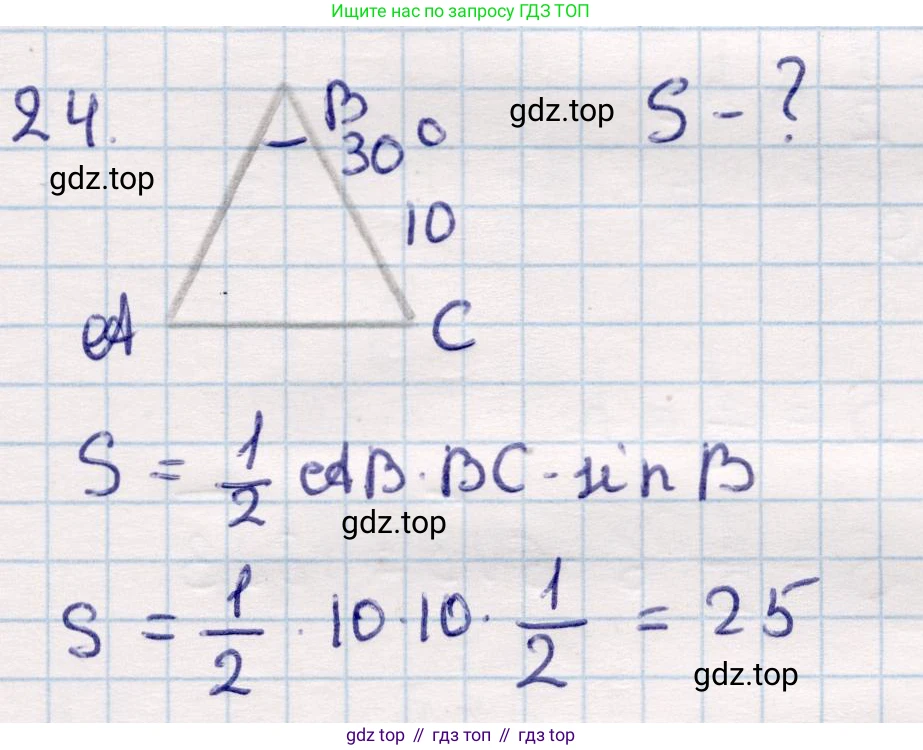 Ищите нас по запросу ГДЗ ТОП
24. B gdz.top S - ?
30°
gdz.top
10
A C
S = 1/2 AB · BC · sin B
gdz.top
S = 1/2 · 10 · 10 · 1/2 = 25
gdz.top
gdz top // гдз топ // gdz top